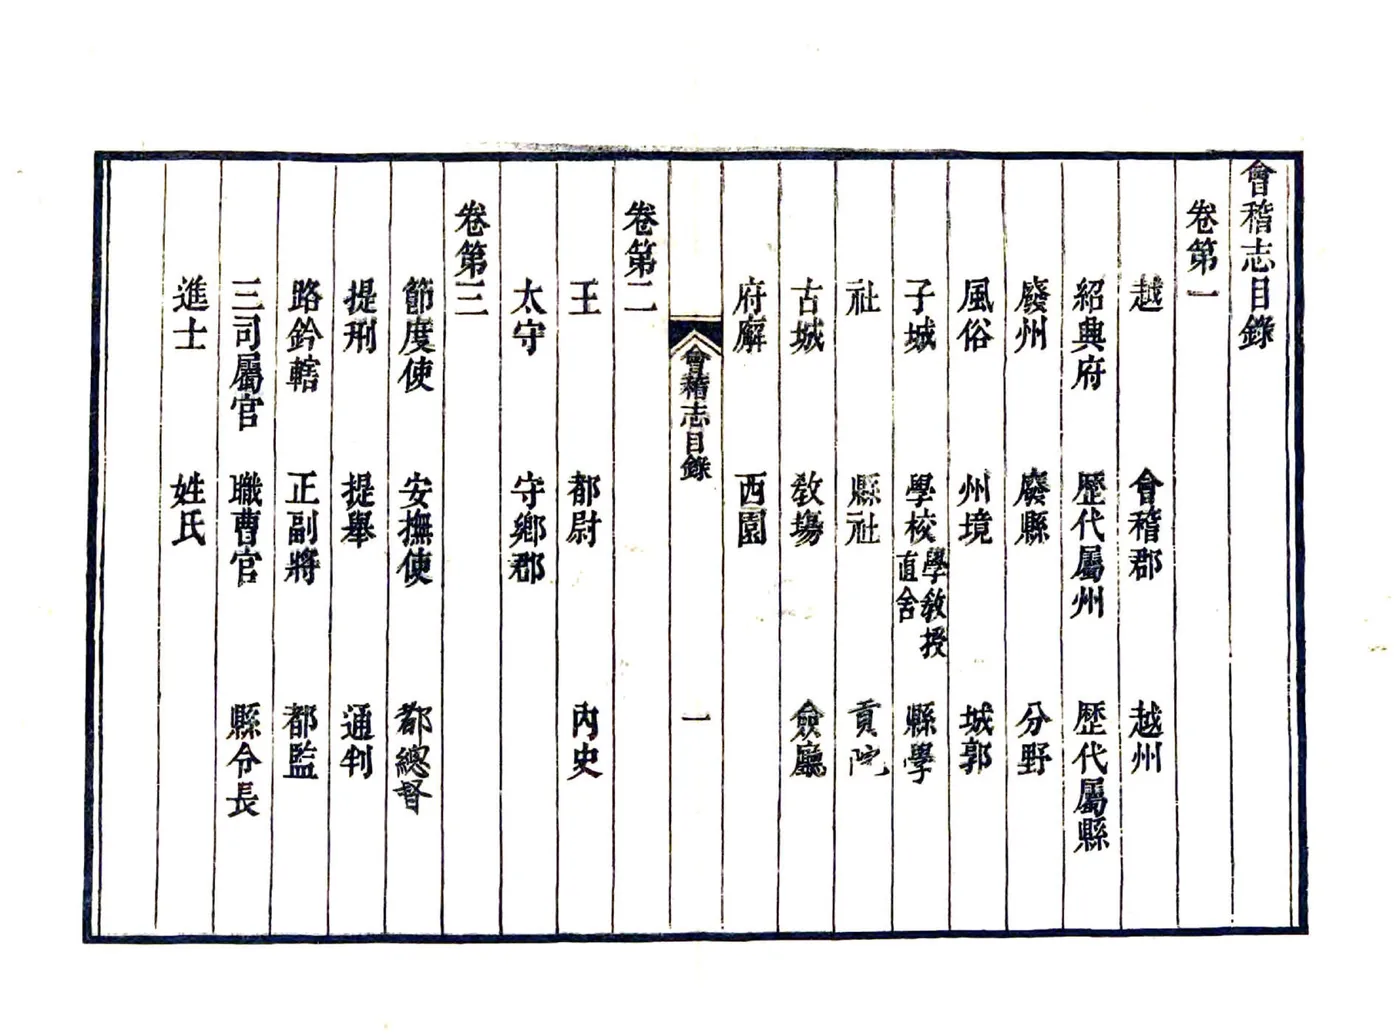 會稽志目錄
卷第一
越 會稽郡 越州
紹興府 歷代屬州 歷代屬縣
廢州 廢縣 分野
風俗 州境 城郭
子城 學校 學教授直舍 縣學
社 縣社 貢院
古城 教場 僉廳
府廨 西園
會稽志目錄 一
卷第二
王 都尉 內史
太守 守鄉郡
卷第三
節度使 安撫使 都總督
提刑 提舉 通判
路鈐轄 正副將 都監
三司屬官 職曹官 縣令長
進士 姓氏